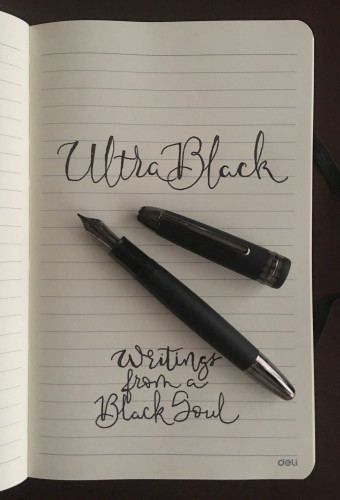 UltraBlack
Writings
from a
Black Soul
deli